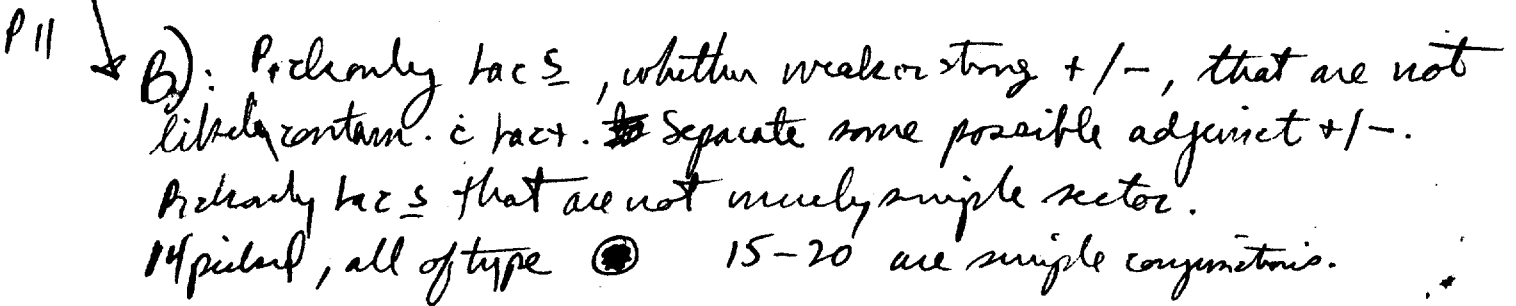 P 11 B): Pick only fac s, whether weak or strong +/-, that are not
likely contam. c̄ fact. Separate some possible adjunct +/-.
Pick only fac s that are not merely simple sector.
14 picked, all of type 15-20 are simple conjunctions.